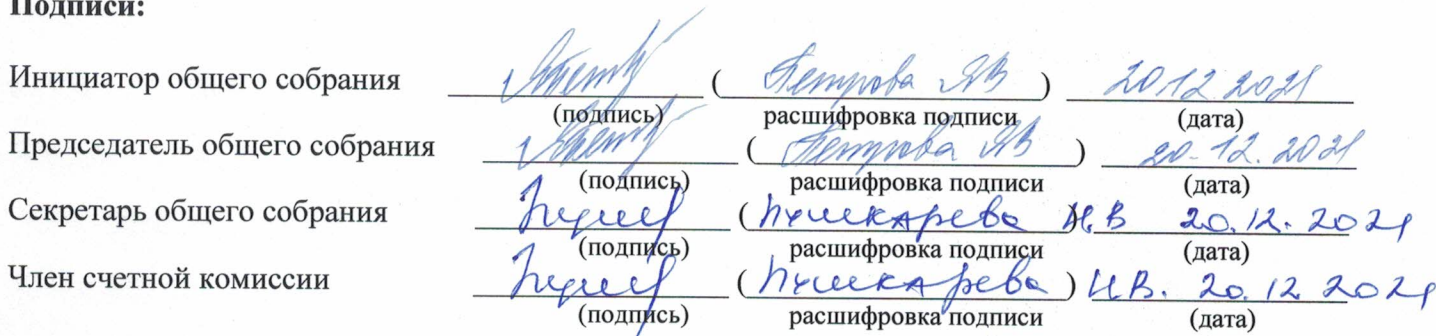 Подписи:
Инициатор общего собрания (Петрова ЯВ) 20 12 2021
(подпись) расшифровка подписи (дата)
Председатель общего собрания (Петрова ЯВ) 20.12.2021
(подпись) расшифровка подписи (дата)
Секретарь общего собрания (Пушкарева) И.В 20.12.2021
(подпись) расшифровка подписи (дата)
Член счетной комиссии (Пушкарева) И.В. 20.12 2021
(подпись) расшифровка подписи (дата)